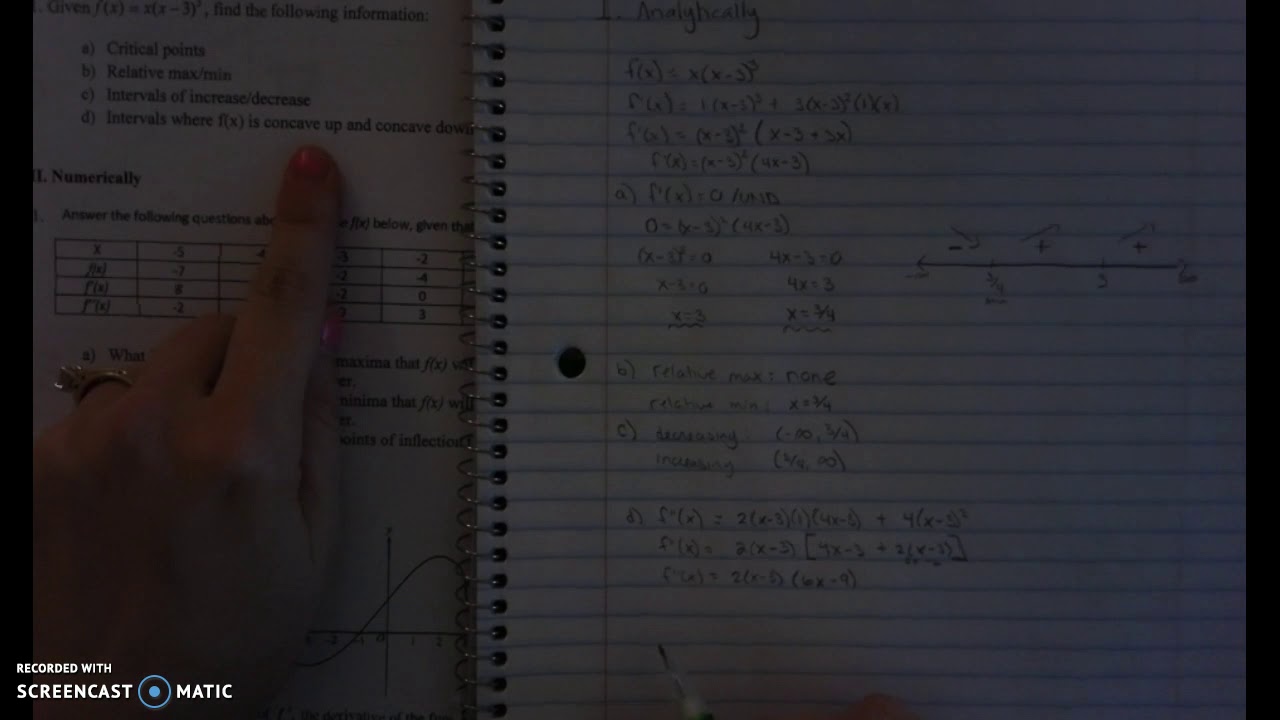 . Given f(x) = x(x − 3)³, find the following information:
a) Critical points
b) Relative max/min
c) Intervals of increase/decrease
d) Intervals where f(x) is concave up and concave down
II. Numerically
1. Answer the following questions f(x) below, given that
X -5 -4 -3 -2
f(x) -7 -2 -4
f'(x) 8 -2 0
f''(x) -2 3
a) What maxima that f(x)
er.
minima that f(x) will
er.
points of inflection
-2 -1 0 1 2
the derivative of the
I. Analytically
f(x) = x(x-3)³
f'(x) = 1(x-3)³ + 3(x-3)²(1)(x)
f'(x) = (x-3)² (x-3+3x)
f'(x) = (x-3)² (4x-3)
a) f'(x) = 0 /UND
0 = (x-3)² (4x-3)
(x-3)² = 0 4x-3=0
x-3=0 4x = 3
x=3 x = 3/4
- + +
-∞ 3/4 3 ∞
min
b) relative max: none
relative min: x = 3/4
c) decreasing: (-∞, 3/4)
increasing (3/4, ∞)
d) f''(x) = 2(x-3)(1)(4x-3) + 4(x-3)²
f''(x) = 2(x-3) [4x-3 + 2(x-3)]
f''(x) = 2(x-3) (6x-9)
RECORDED WITH
SCREENCAST MATIC